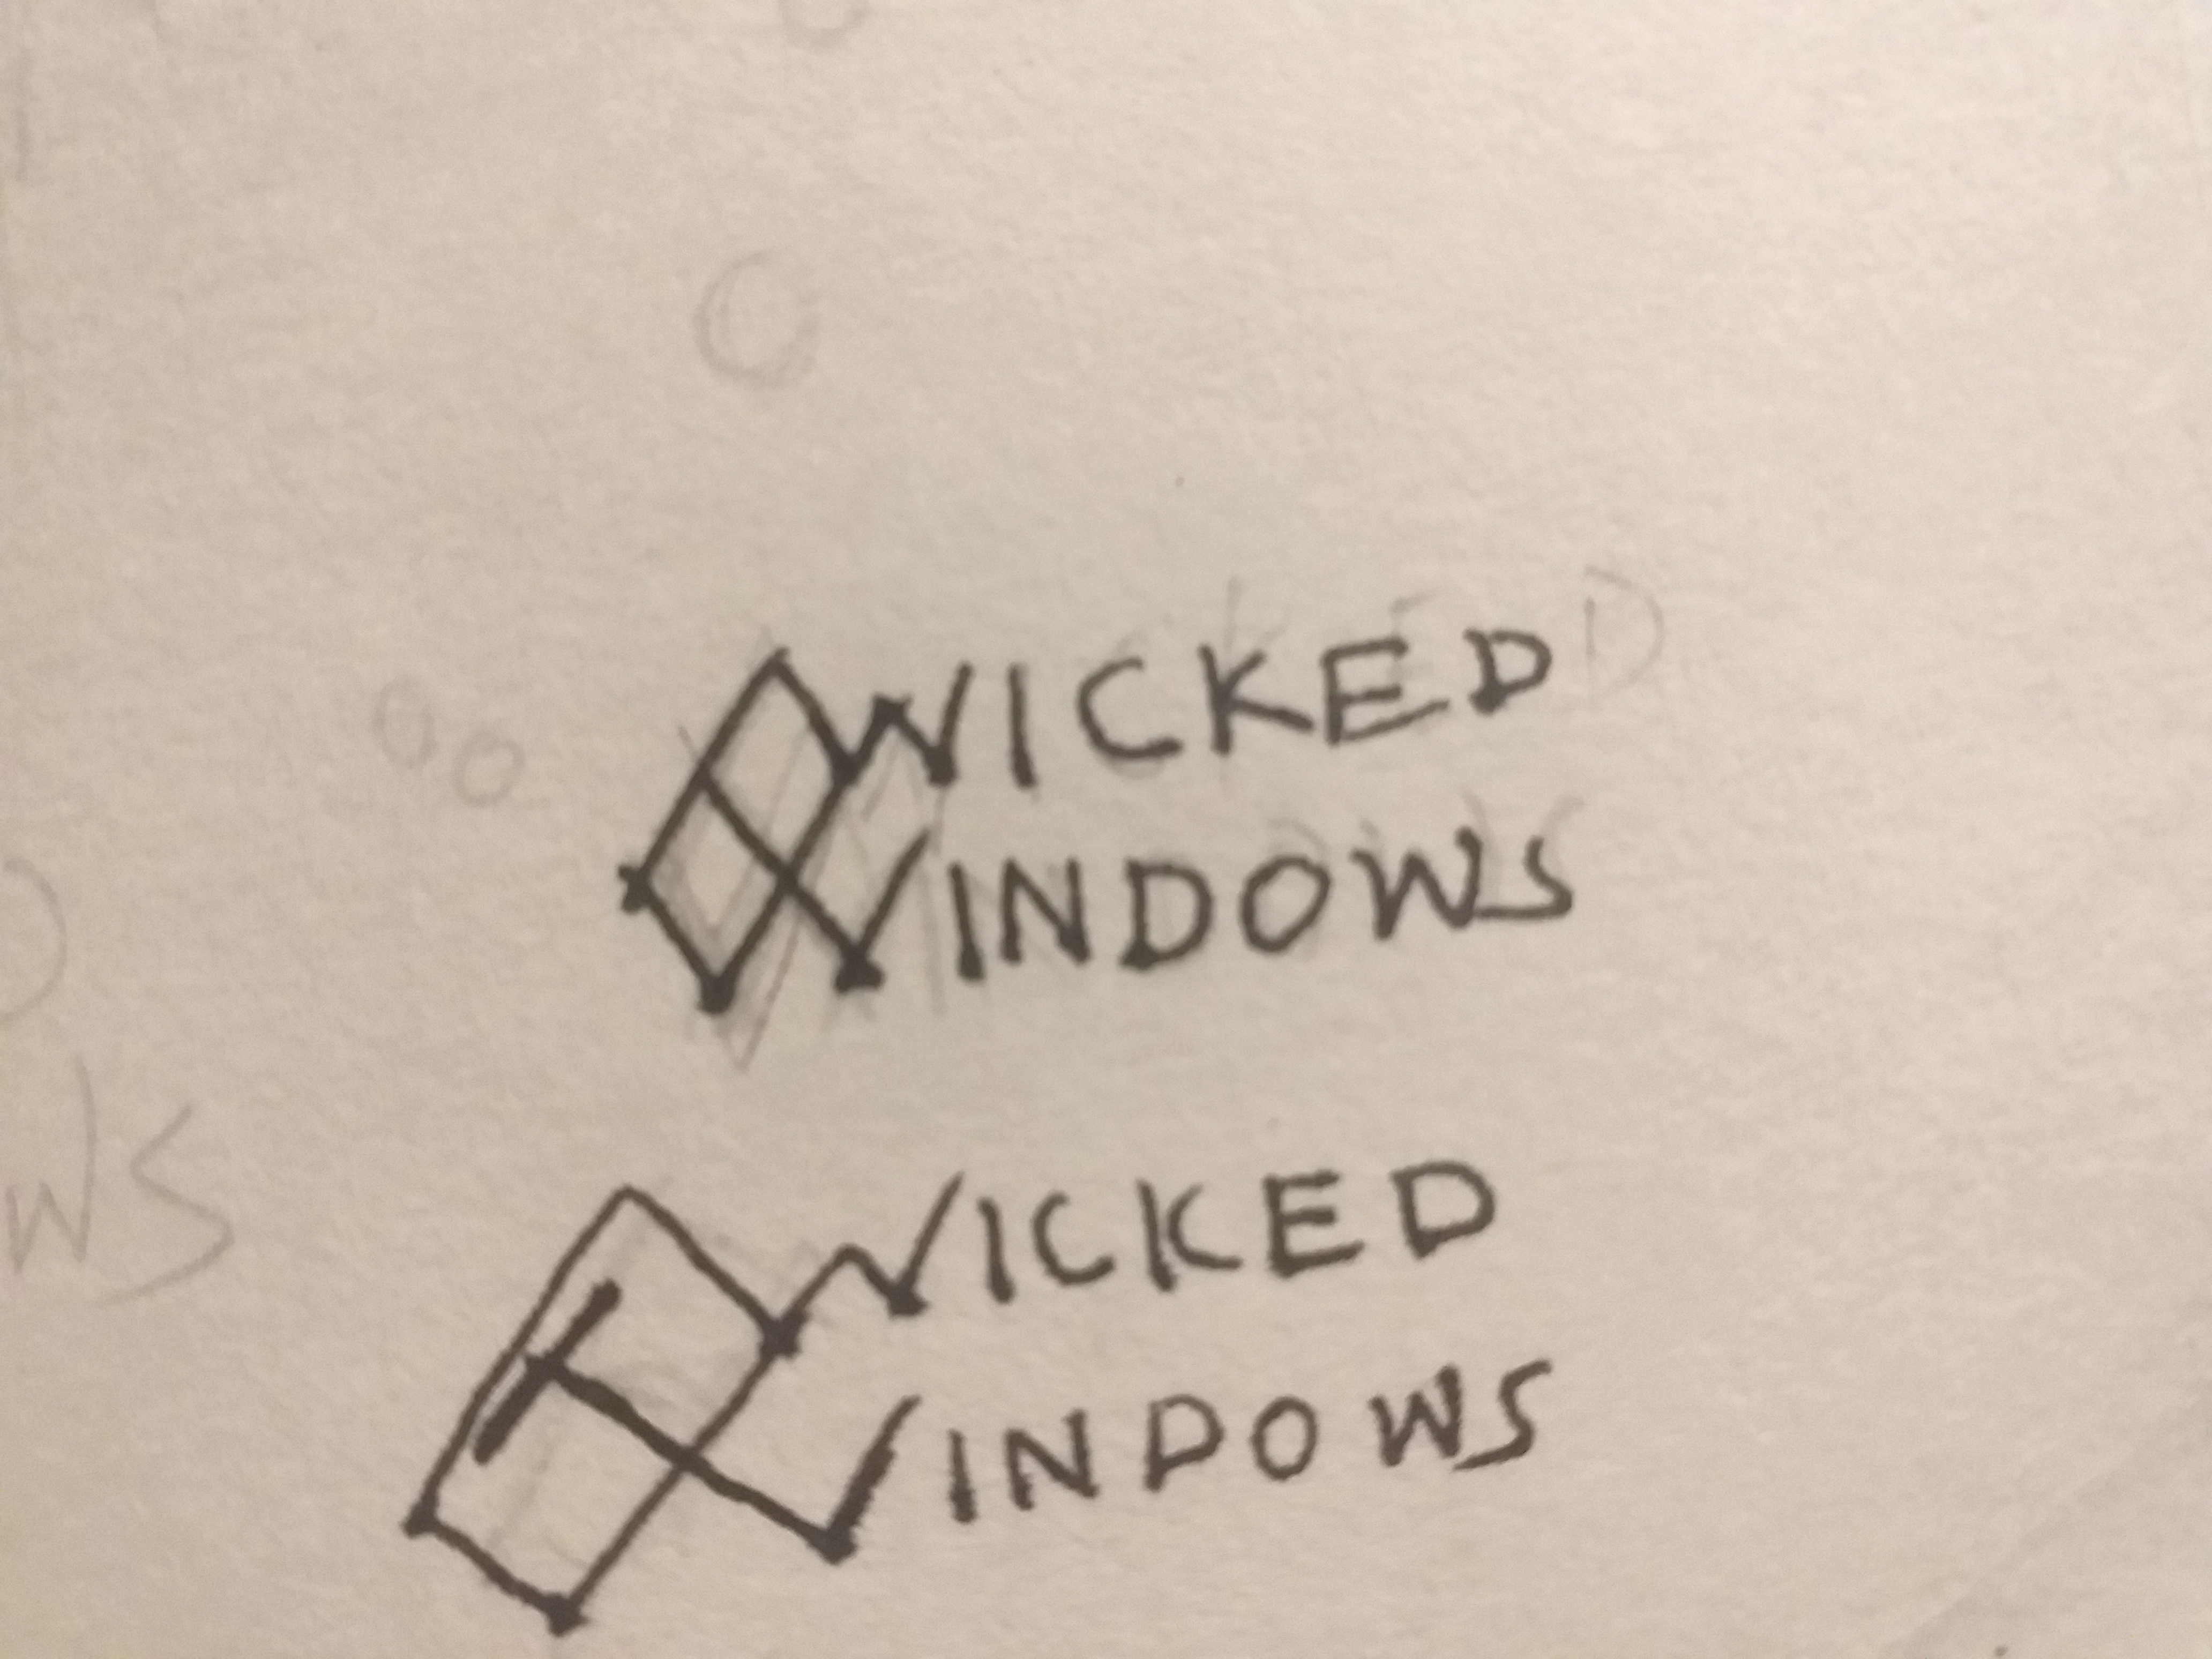 WICKED
WINDOWS
WICKED
WINDOWS
WS